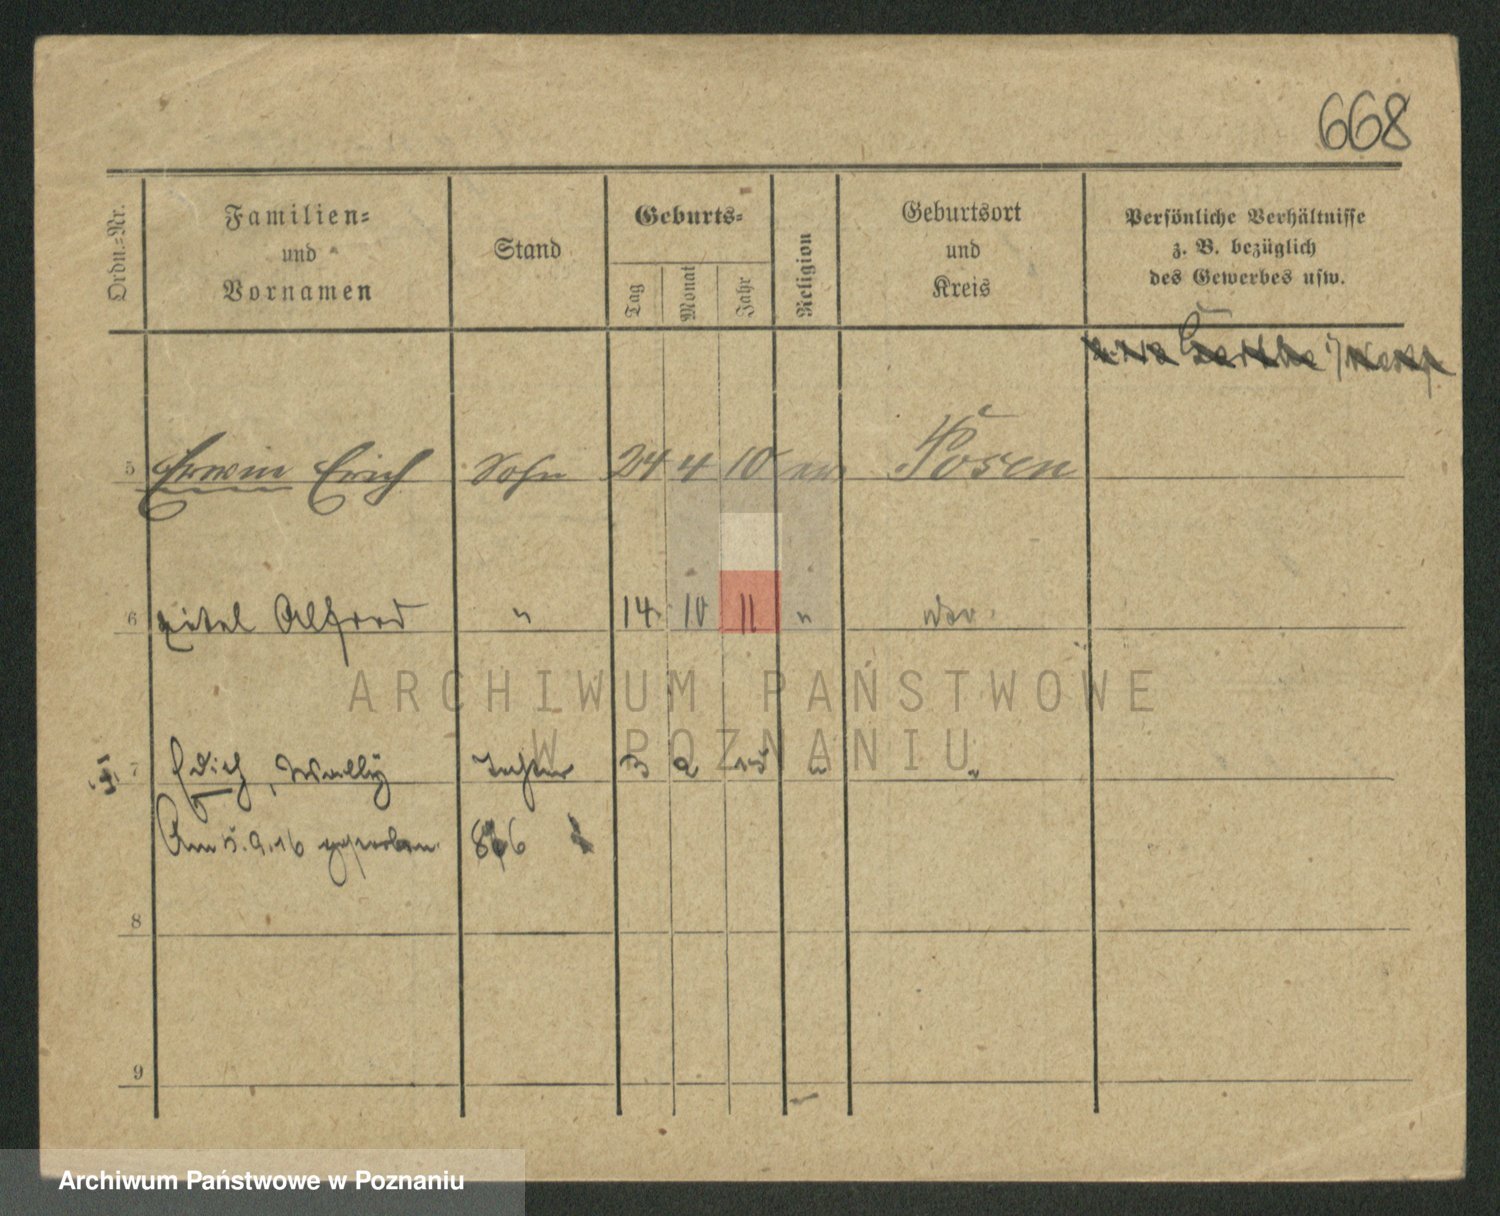 668
Ordn.-Nr.
Familien-
und
Vornamen
Stand
Geburts-
Tag
Monat
Jahr
Religion
Geburtsort
und
Kreis
Persönliche Verhältnisse
z. B. bezüglich
des Gewerbes usw.
5 Erwin Erich Sohn 24 4 10 ev. Posen
6 Alfred " 14. 10 11 "
ARCHIWUM PAŃSTWOWE
W POZNANIU
7 Edith, Wally Tochter 3 2 15 " "
Am 5.9.16 gestorben. 866
8
9
Archiwum Państwowe w Poznaniu